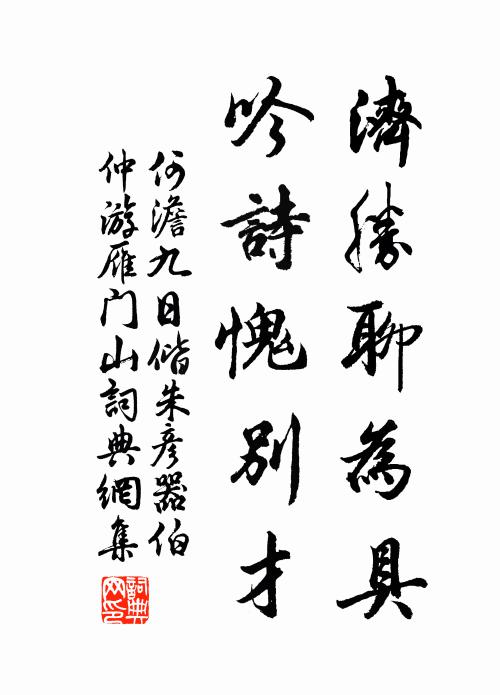 濟勝聊為具
吟詩愧別才
何澹九日偕朱彥器伯
仲游雁门山詞典網集
詞典网印